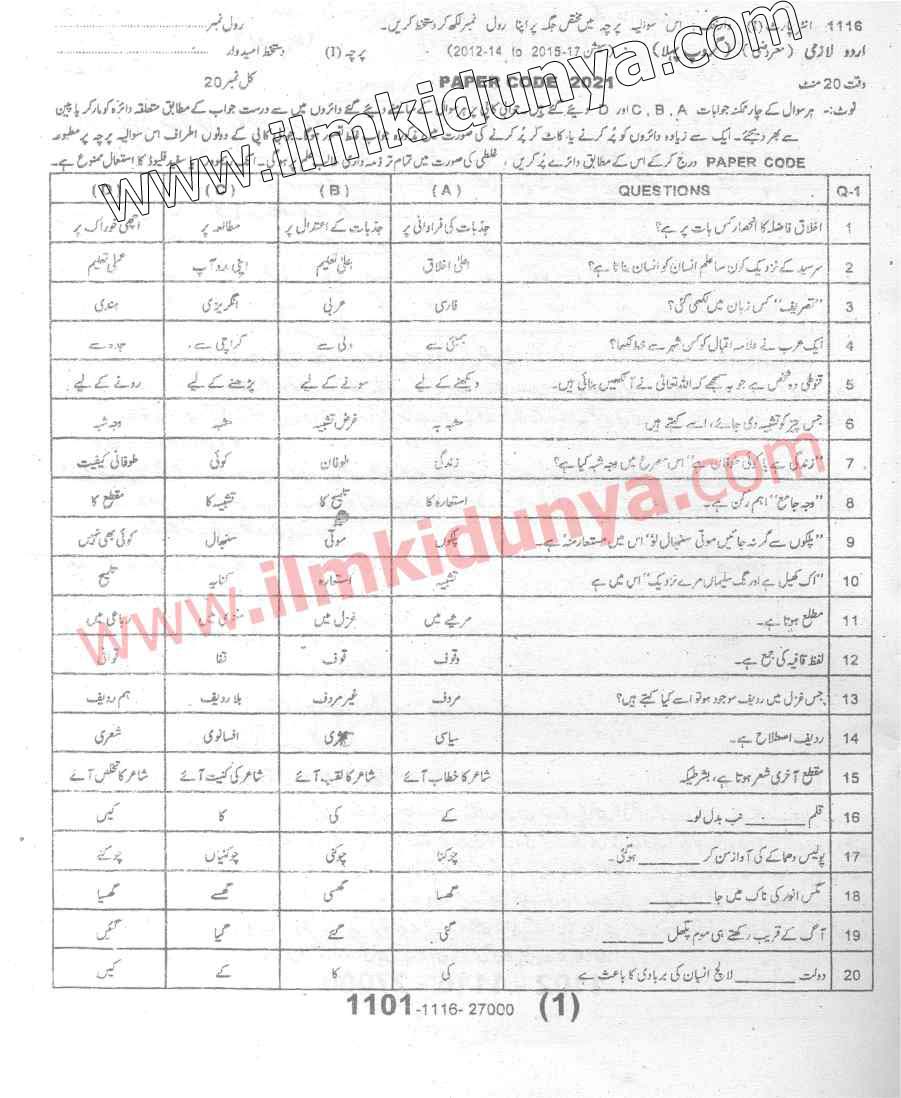 1116 انٹر پارٹ اس سوالیہ پرچہ میں مختص جگہ پر اپنا رول نمبر لکھ کر دستخط کریں۔ رول نمبر
اردو لازمی (معروضی) گروپ پہلا (2012-14 to 2015-17) پرچہ (1) دستخط امیدوار
وقت 20 منٹ PAPER CODE 2021 کل نمبر 20
نوٹ:- ہر سوال کے چار ممکنہ جوابات C, B, A اور D دیئے گئے ہیں۔ جوابی کاپی پر ہر سوال کے سامنے دیئے گئے دائروں میں سے درست جواب کے مطابق متعلقہ دائرہ کو مارکر یا پین
سے بھر دیجئے۔ ایک سے زیادہ دائروں کو پُر کرنے یا کاٹ کر پُر کرنے کی صورت میں مذکورہ جواب غلط تصور ہوگا۔ جوابی کاپی کے دونوں اطراف اس سوالیہ پرچہ پر مطبوعہ
PAPER CODE درج کر کے اس کے مطابق دائرے پُر کریں، غلطی کی صورت میں تمام تر ذمہ داری طالب علم پر ہوگی۔ انک ریموور یا سفید فلیوڈ کا استعمال ممنوع ہے۔
Q-1 QUESTIONS (A) (B) (C) (D)
1 اخلاق فاضلہ کا انحصار کس بات پر ہے؟ جذبات کی فراوانی پر جذبات کے اعتدال پر مطالعہ پر اچھی خوراک پر
2 سرسید کے نزدیک کون سا علم انسان کو انسان بناتا ہے؟ اعلیٰ اخلاق اعلیٰ تعلیم اپنی مدد آپ عملی تعلیم
3 "تصریف" کس زبان میں لکھی گئی؟ فارسی عربی انگریزی ہندی
4 ایک عرب نے علامہ اقبال کو کس شہر سے خط لکھا؟ بمبئی سے دلی سے کراچی سے جدہ سے
5 قنوطی وہ شخص ہے جو یہ سمجھے کہ اللہ تعالیٰ نے آنکھیں بنائی ہیں۔ دیکھنے کے لیے سونے کے لیے پڑھنے کے لیے رونے کے لیے
6 جس چیز کو تشبیہ دی جائے، اسے کہتے ہیں مشبہ بہ غرض تشبیہ مشبہ وجہ شبہ
7 "زندگی ہے یا کوئی طوفان ہے" اس مصرع میں وجہ شبہ کیا ہے؟ زندگی طوفان کوئی طوفانی کیفیت
8 "وجہ جامع" اہم رکن ہے۔ استعارہ کا تلمیح کا تشبیہ کا مقطع کا
9 "پلکوں سے گر نہ جائیں موتی سنبھال لو" اس میں مستعار منہ ہے۔ پلکوں موتی سنبھال کوئی بھی نہیں
10 "اک کھیل ہے اورنگ سلیماں مرے نزدیک" اس میں ہے تشبیہ استعارہ کنایہ تلمیح
11 مطلع ہوتا ہے۔ مرثیے میں غزل میں مثنوی میں رباعی میں
12 لفظ قافیہ کی جمع ہے۔ وقوف قوف قفا قوافی
13 جس غزل میں ردیف موجود ہو تو اسے کیا کہتے ہیں؟ مردف غیر مردف بلا ردیف ہم ردیف
14 ردیف اصطلاح ہے۔ سیاسی افسانوی شعری
15 مقطع آخری شعر ہوتا ہے، بشرطیکہ شاعر کا خطاب آئے شاعر کا لقب آئے شاعر کی کنیت آئے شاعر کا تخلص آئے
16 قلم ______ نب بدل لو۔ کے کی کا کیں
17 پولیس دھماکے کی آواز سن کر ______ ہوگئی۔ چوکنا چوکنی چوکنیاں چوکنے
18 مگس انور کی ناک میں جا ______ گھسا گھسی گھسے گھسیا
19 آگ کے قریب رکھتے ہی موم پگھل ______ گئی گئے گیا گئیں
20 دولت ______ لالچ انسان کی بربادی کا باعث ہے کی کا کے کیں
1101-1116-27000 (1)
www.ilmkidunya.com
www.ilmkidunya.com